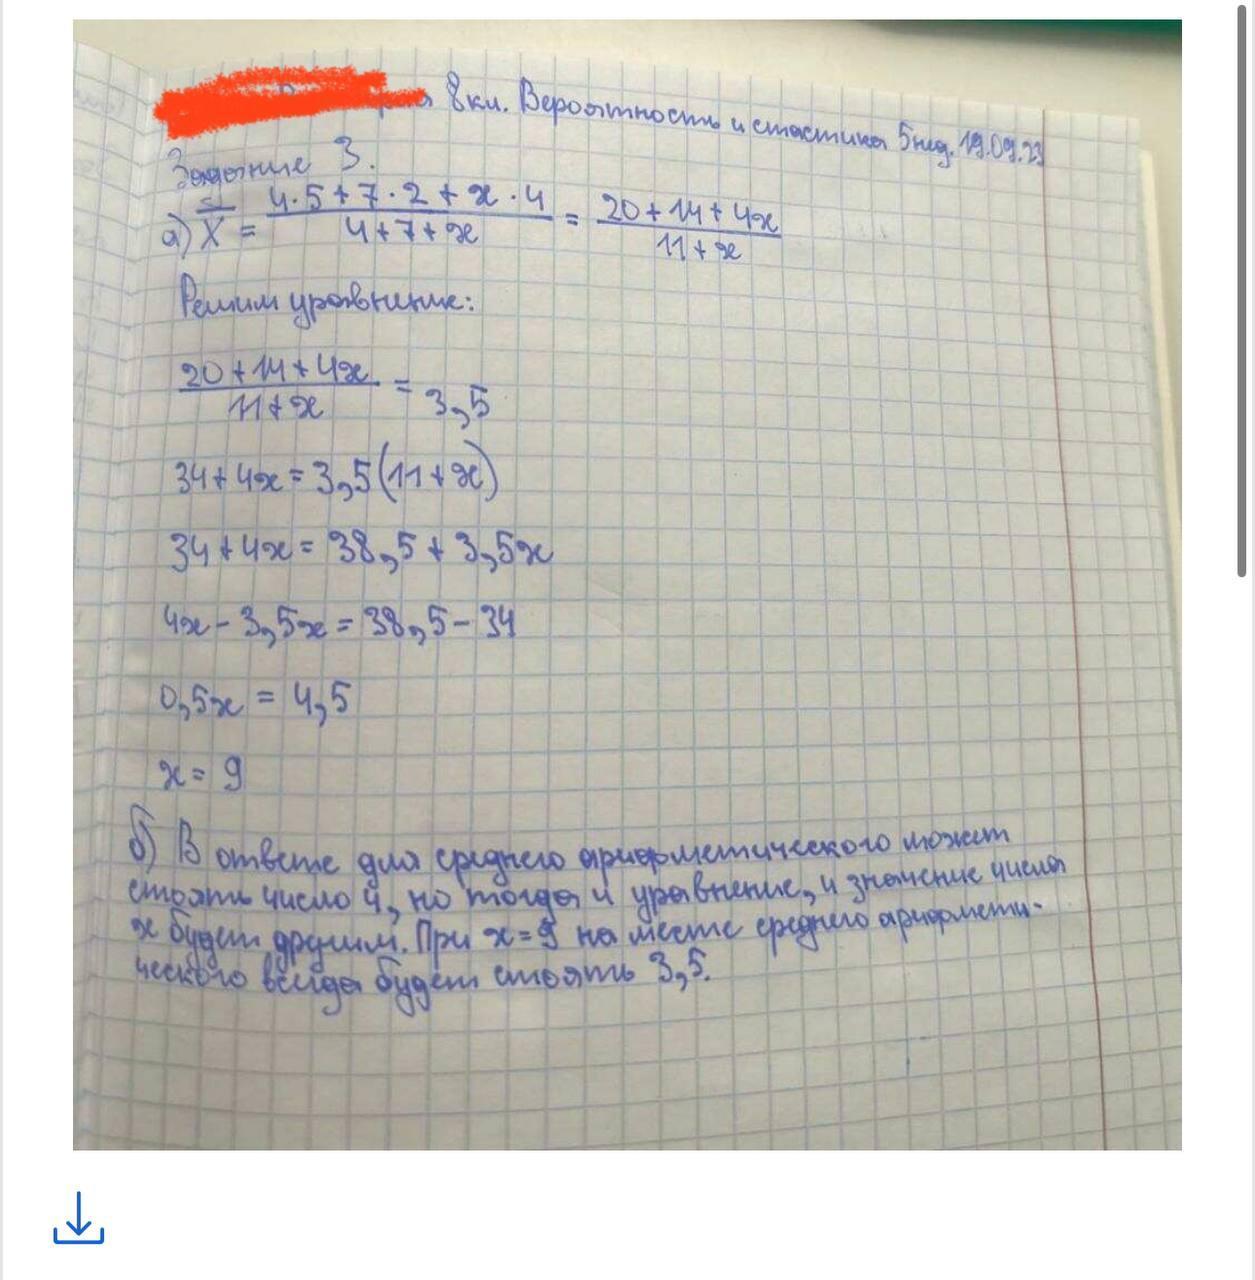 8кл. Вероятность и стастика 5нед. 19.09.23
Задание 3.
а) X̄ = (4·5+7·2+x·4)/(4+7+x) = (20+14+4x)/(11+x)
Решим уравнение:
(20+14+4x)/(11+x) = 3,5
34+4x=3,5(11+x)
34+4x=38,5+3,5x
4x-3,5x=38,5-34
0,5x=4,5
x=9
б) В ответе для среднего арифметического может
стоять число 4, но тогда и уравнение, и значение числа
x будет другим. При x=9 на месте среднего арифмети-
ческого всегда будет стоять 3,5.